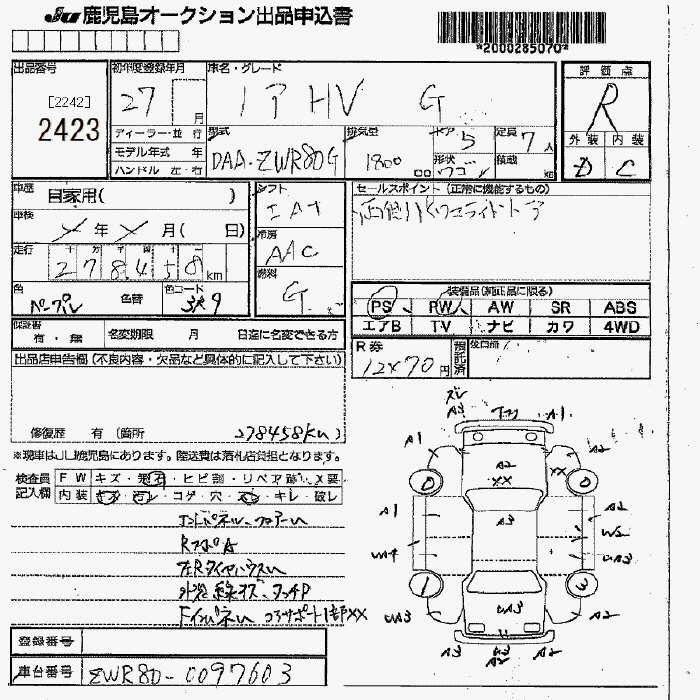 JU 鹿児島オークション出品申込書
*2000285070*
出品番号
[2242]
2423
初年度登録年月
27 月
車名・グレード
ノア HV G
評価点
R
外装 内装
D C
ディーラー・並行
モデル年式 年
ハンドル 左・右
型式
DAA-ZWR80G
排気量
1800 cc
ドア 5
形状 ワゴン
定員 7 人
積載 kg
車歴 自家用( )
車検 年 月( 日)
走行 278458km
色 パープル 色替
色コード 3R9
シフト
IAT
冷房
AAC
燃料
G
セールスポイント(正常に機能するもの)
両側パワースライドドア
装備品(純正品に限る)
PS PW AW SR ABS
エアB TV ナビ カワ 4WD
保証書 有・無
名変期限 月 日迄に名変できる方
R券
12470円
預託済
後日部
出品店申告欄(不良内容・欠品など具体的に記入して下さい)
修復歴 有(箇所
278458km)
※現車はJU鹿児島にあります。陸送費は落札店負担となります。
検査員記入欄
FW キズ・飛石・ヒビ割・リペア跡・X要
内装 キズ・汚レ・コゲ・穴・スレ・キレ・破レ
エンドパネル、フロアーU
RアポA
左RタイヤハウスU
外装 線キズ、タッチP
FインパネU コアサポート1部XX
ズレ
A3 A1
A1 A2 XX XX
0 0
A1 A3 A2
W2
UA4 UA3
1 3
UA3 UA3 A2
A3 U3 A2 A3
登録番号
車台番号 ZWR80-0097603